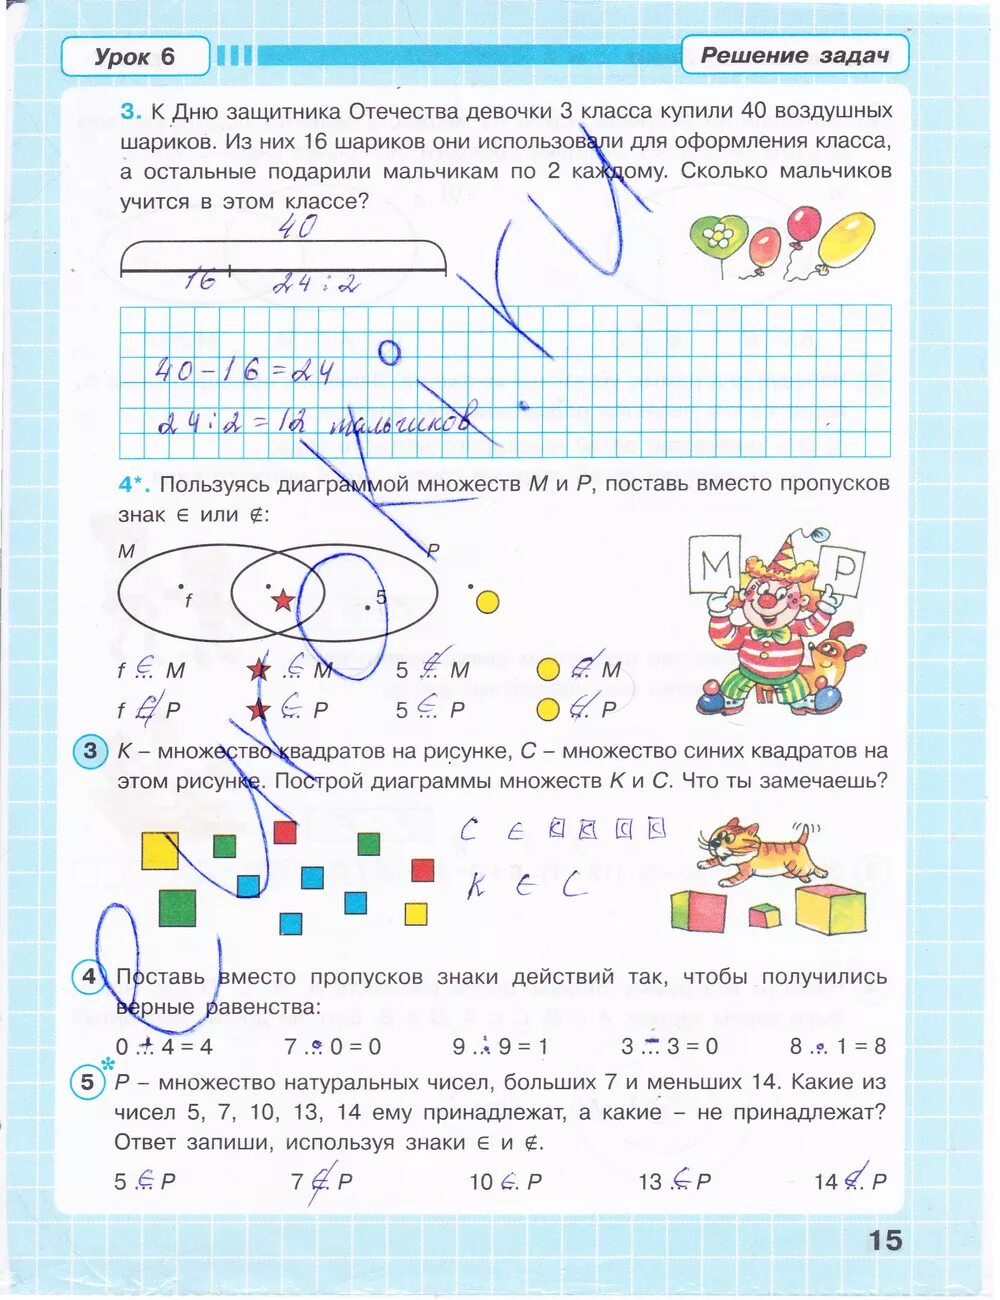 Урок 6
Решение задач
3. К Дню защитника Отечества девочки 3 класса купили 40 воздушных
шариков. Из них 16 шариков они использовали для оформления класса,
а остальные подарили мальчикам по 2 каждому. Сколько мальчиков
учится в этом классе?
40
16 24 : 2
40 - 16 = 24
24 : 2 = 12 мальчиков
4*. Пользуясь диаграммой множеств М и Р, поставь вместо пропусков
знак ∈ или ∉:
М Р
f 5
М Р
f ∈ М ★ ∈ М 5 ∉ М ∉ М
f ∉ Р ★ ∈ Р 5 ∈ Р ∉ Р
3 К – множество квадратов на рисунке, С – множество синих квадратов на
этом рисунке. Построй диаграммы множеств К и С. Что ты замечаешь?
С ∈
К ∈ С
4 Поставь вместо пропусков знаки действий так, чтобы получились
верные равенства:
0 + 4 = 4 7 · 0 = 0 9 : 9 = 1 3 – 3 = 0 8 · 1 = 8
5* Р – множество натуральных чисел, больших 7 и меньших 14. Какие из
чисел 5, 7, 10, 13, 14 ему принадлежат, а какие – не принадлежат?
Ответ запиши, используя знаки ∈ и ∉.
5 ∈ Р 7 ∉ Р 10 ∈ Р 13 ∈ Р 14 ∉ Р
15